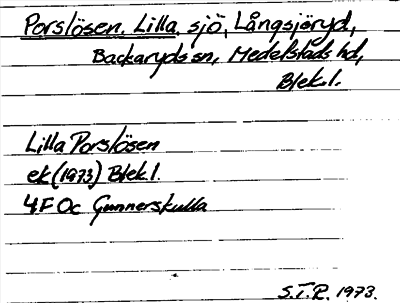 Porslösen, Lilla, sjö, Långsjöryd,
Backaryds sn, Medelstads hd,
Blek. l.
Lilla Porslösen
ek (1973) Blek. l.
4F Oc Gunnerskulla
S.T.R. 1973.